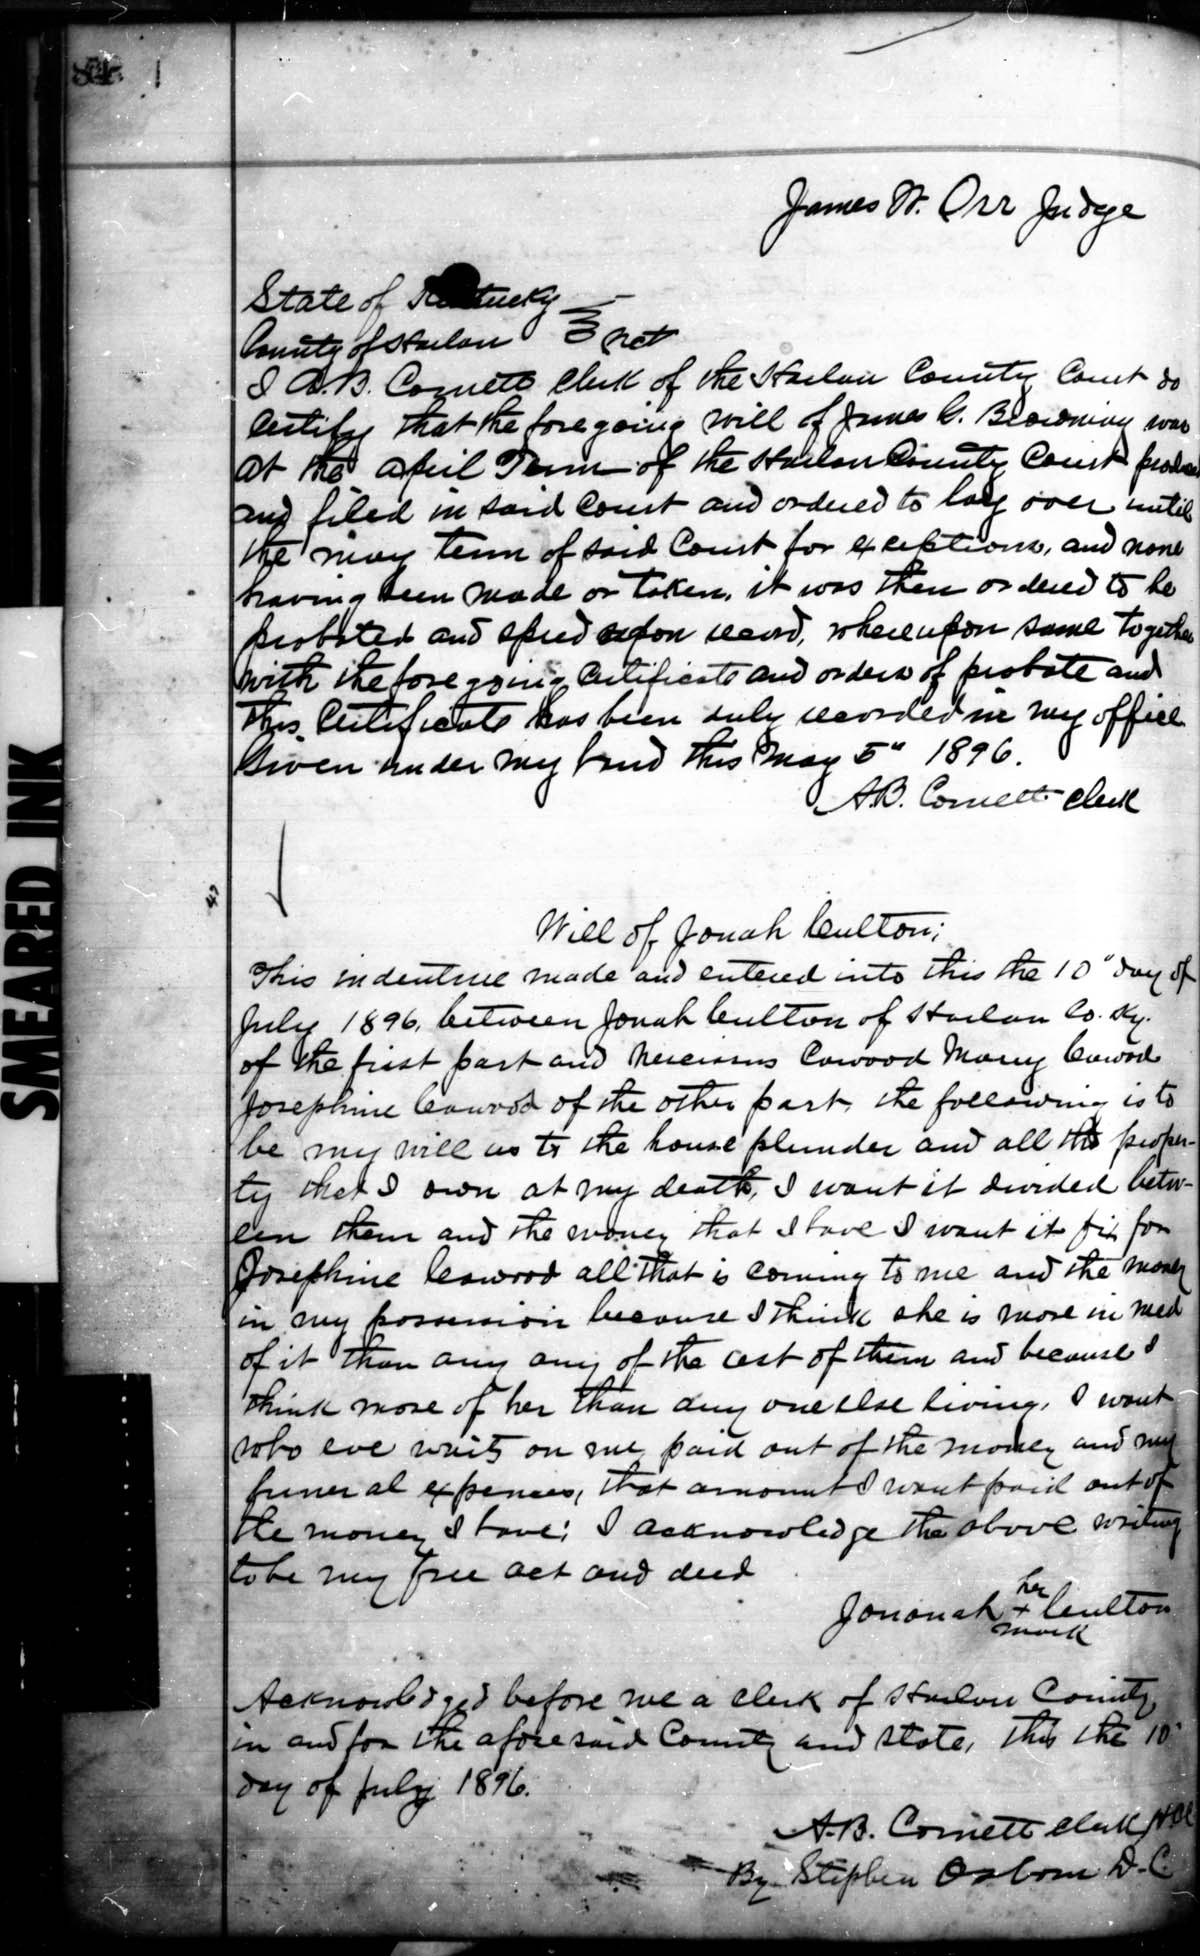 James W. Orr Judge
State of Kentucky
County of Harlan Sct
I A.B. Cornett Clerk of the Harlan County Court do
Certify that the foregoing will of James G. Browning was
at the April Term of the Harlan County Court produced
and filed in said Court and ordered to lay over until
the may term of said Court for exceptions, and none
having been made or taken, it was then ordered to be
probated and spred upon record, whereupon same together
with the foregoing Certificate and orders of probate and
this Certificate has been duly recorded in my office
Given under my hand this May 5" 1896.
A.B. Cornett clerk
Will of Jonah Culton;
This indenture made and entered into this the 10" day of
July 1896, between Jonah Culton of Harlan Co. Ky.
of the first part and Nercissus Cawood Mary Cawood
Josephine Cawood of the other part, the following is to
be my will as to the house plunder and all the proper-
ty that I own at my death, I want it divided betw-
een them and the money that I have I want it fix for
Josephine Cawood all that is coming to me and the money
in my possession because I think she is more in need
of it than any any of the rest of them and because I
think more of her than any one else living, I want
who eve waits on me paid out of the money and my
funeral expences, that amount I want paid out of
the money I have; I acknowledge the above writing
to be my free act and deed
her
Jononah + Culton
mark
Acknowledged before me a clerk of Harlan County,
in and for the aforesaid County and state, this the 10"
day of July 1896.
A.B. Cornett clerk
By Stephen Osborn D.C.
SMEARED INK